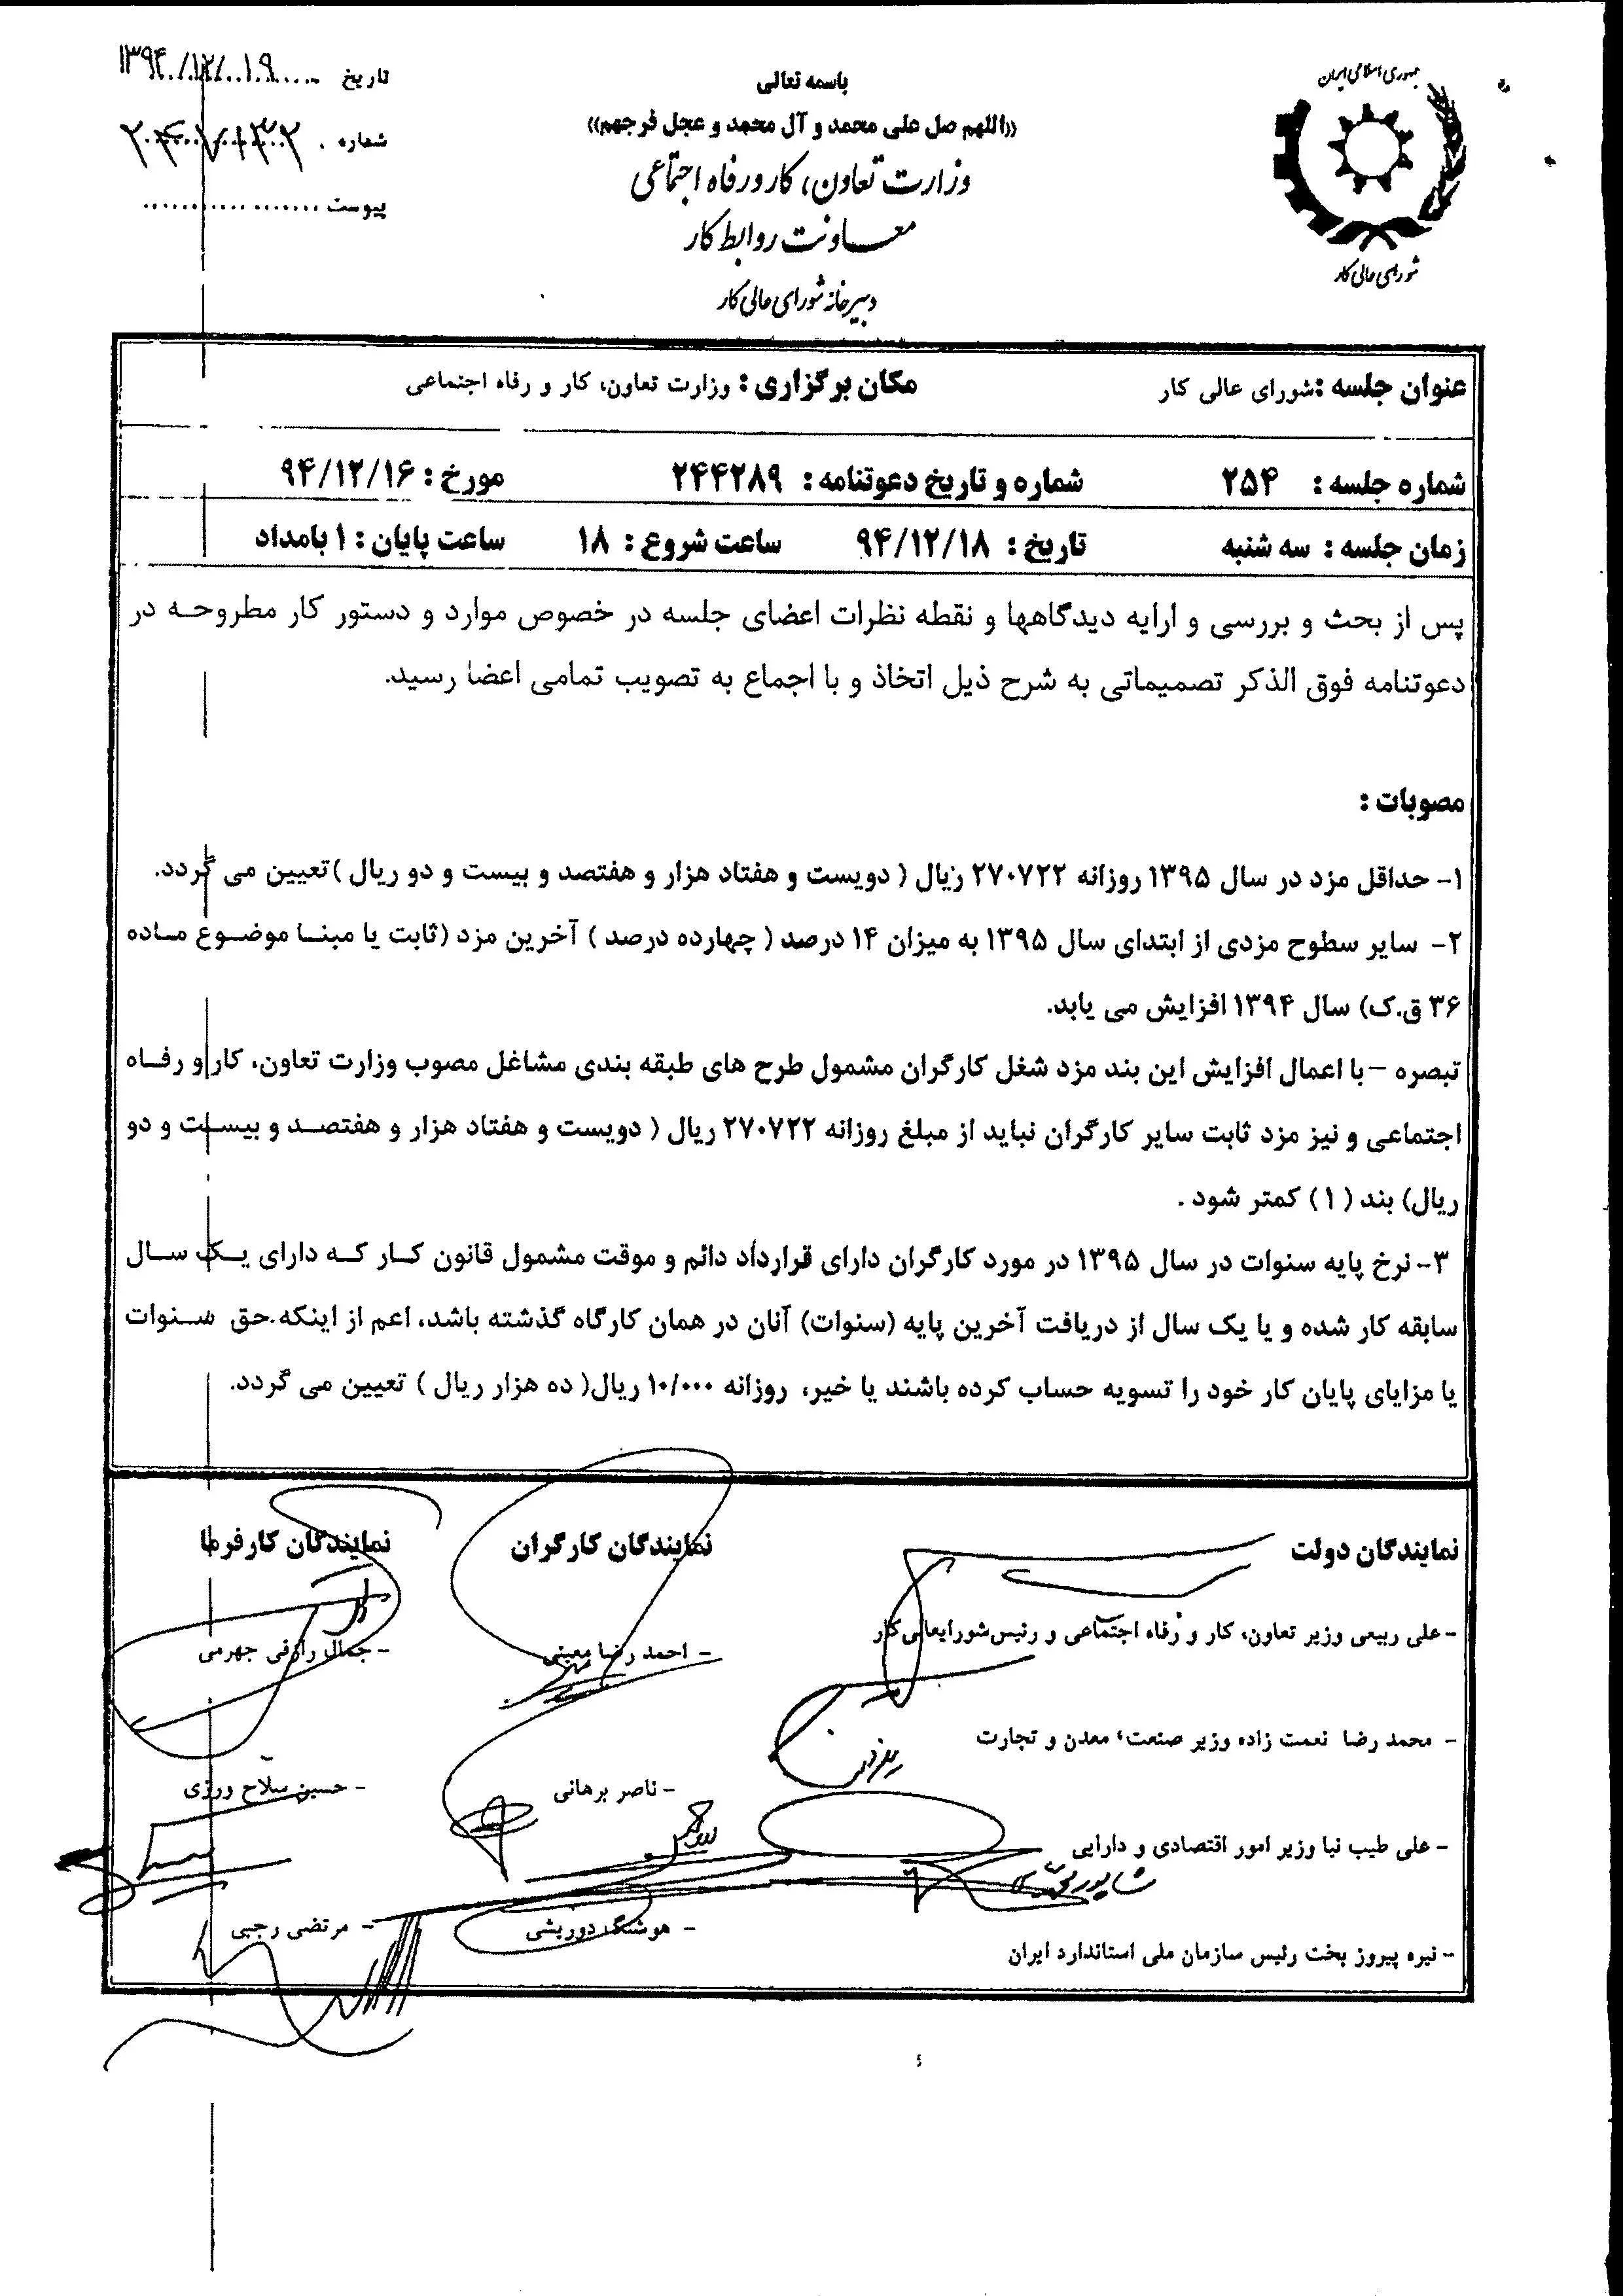 جمهوری اسلامی ایران
شورای عالی کار
باسمه تعالی
«اللهم صل علی محمد و آل محمد و عجل فرجهم»
وزارت تعاون، کار و رفاه اجتماعی
معاونت روابط کار
دبیرخانه شورای عالی کار
تاریخ ۱۳۹۴/۱۲/۰۱۹
شماره
پیوست
عنوان جلسه :شورای عالی کار مکان برگزاری : وزارت تعاون، کار و رفاه اجتماعی
شماره جلسه : ۲۵۴ شماره و تاریخ دعوتنامه : ۲۴۴۲۸۹ مورخ : ۹۴/۱۲/۱۶
زمان جلسه : سه شنبه تاریخ : ۹۴/۱۲/۱۸ ساعت شروع : ۱۸ ساعت پایان : ۱ بامداد
پس از بحث و بررسی و ارایه دیدگاهها و نقطه نظرات اعضای جلسه در خصوص موارد و دستور کار مطروحه در
دعوتنامه فوق الذکر تصمیماتی به شرح ذیل اتخاذ و با اجماع به تصویب تمامی اعضا رسید.
مصوبات :
۱- حداقل مزد در سال ۱۳۹۵ روزانه ۲۷۰۷۲۲ ریال ( دویست و هفتاد هزار و هفتصد و بیست و دو ریال )تعیین می گردد.
۲- سایر سطوح مزدی از ابتدای سال ۱۳۹۵ به میزان ۱۴ درصد ( چهارده درصد ) آخرین مزد (ثابت یا مبنا موضوع ماده
۳۶ ق.ک) سال ۱۳۹۴ افزایش می یابد.
تبصره – با اعمال افزایش این بند مزد شغل کارگران مشمول طرح های طبقه بندی مشاغل مصوب وزارت تعاون، کار و رفاه
اجتماعی و نیز مزد ثابت سایر کارگران نباید از مبلغ روزانه ۲۷۰۷۲۲ ریال ( دویست و هفتاد هزار و هفتصد و بیست و دو
ریال) بند ( ۱ ) کمتر شود .
۳- نرخ پایه سنوات در سال ۱۳۹۵ در مورد کارگران دارای قرارداد دائم و موقت مشمول قانون کار که دارای یک سال
سابقه کار شده و یا یک سال از دریافت آخرین پایه (سنوات) آنان در همان کارگاه گذشته باشد، اعم از اینکه حق سنوات
یا مزایای پایان کار خود را تسویه حساب کرده باشند یا خیر، روزانه ۱۰/۰۰۰ ریال( ده هزار ریال ) تعیین می گردد.
نمایندگان دولت نمایندگان کارگران نمایندگان کارفرما
- علی ربیعی وزیر تعاون، کار و رفاه اجتماعی و رئیس شورایعالی کار - احمد رضا معینی - جمال رازقی جهرمی
- محمد رضا نعمت زاده وزیر صنعت، معدن و تجارت - ناصر برهانی - حسین سلاح ورزی
- علی طیب نیا وزیر امور اقتصادی و دارایی - هوشنگ دوریشی - مرتضی رجبی
- نیره پیروز بخت رئیس سازمان ملی استاندارد ایران